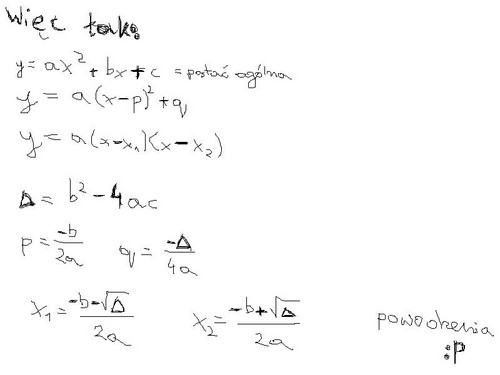 Więc tak:
y = ax² + bx + c = postać ogólna
y = a(x-p)² + q
y = a(x-x₁)(x-x₂)
Δ = b² - 4ac
p = -b/2a q = -Δ/4a
x₁ = -b-√Δ/2a x₂ = -b+√Δ/2a powodzenia
:P